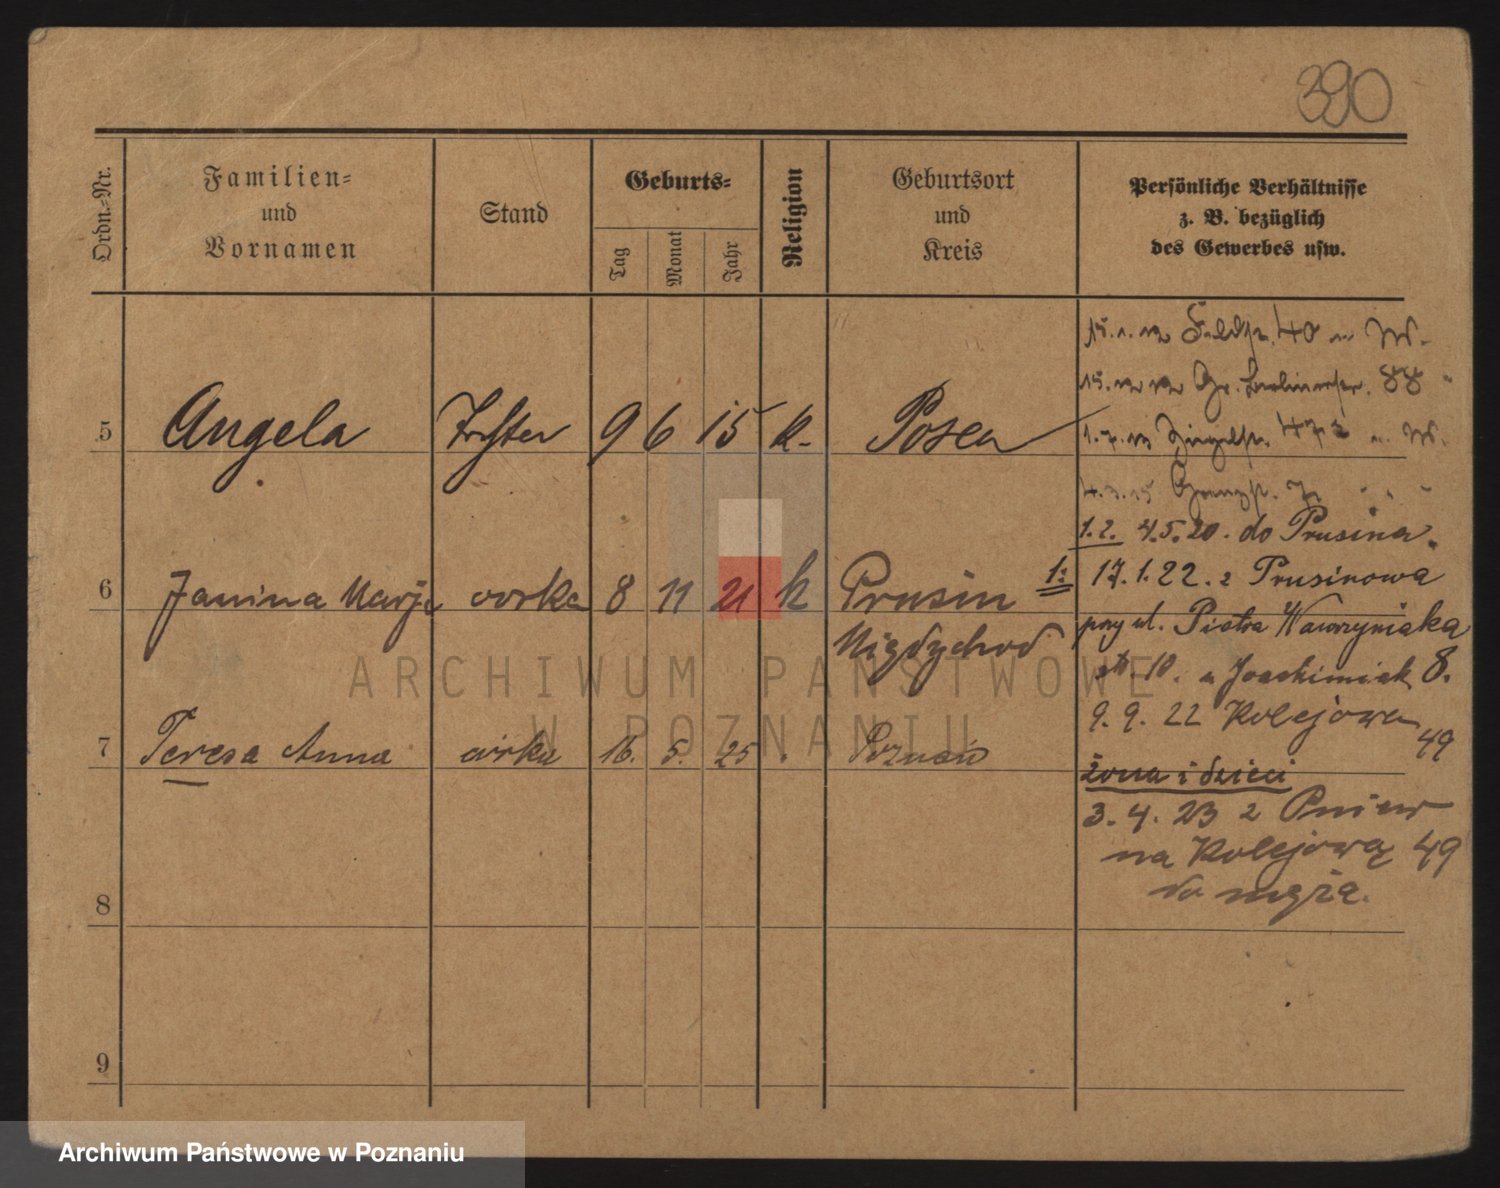 390
Ordn.-Nr.
Familien-
und
Vornamen
Stand
Geburts-
Tag
Monat
Jahr
Religion
Geburtsort
und
Kreis
Persönliche Verhältnisse
z. B. bezüglich
des Gewerbes usw.
5 Angela Tochter 9 6 15 k. Posen
6 Janina Marja córka 8 11 21 k Prusin
Międzychod
7 Teresa Anna córka 16. 5. 25 Poznań
8
9
40
88
1.2. 4.5.20. do Prusina.
1: 17.1.22. z Prusinowa
przy ul. Piotra Wawrzyniaka
10. u Joachimiak 8.
9. 9. 22 Kolejowa 49
żona i dzieci
3. 4. 23 z Pniew
na Kolejową 49
do męża.
ARCHIWUM PAŃSTWOWE
W POZNANIU
Archiwum Państwowe w Poznaniu